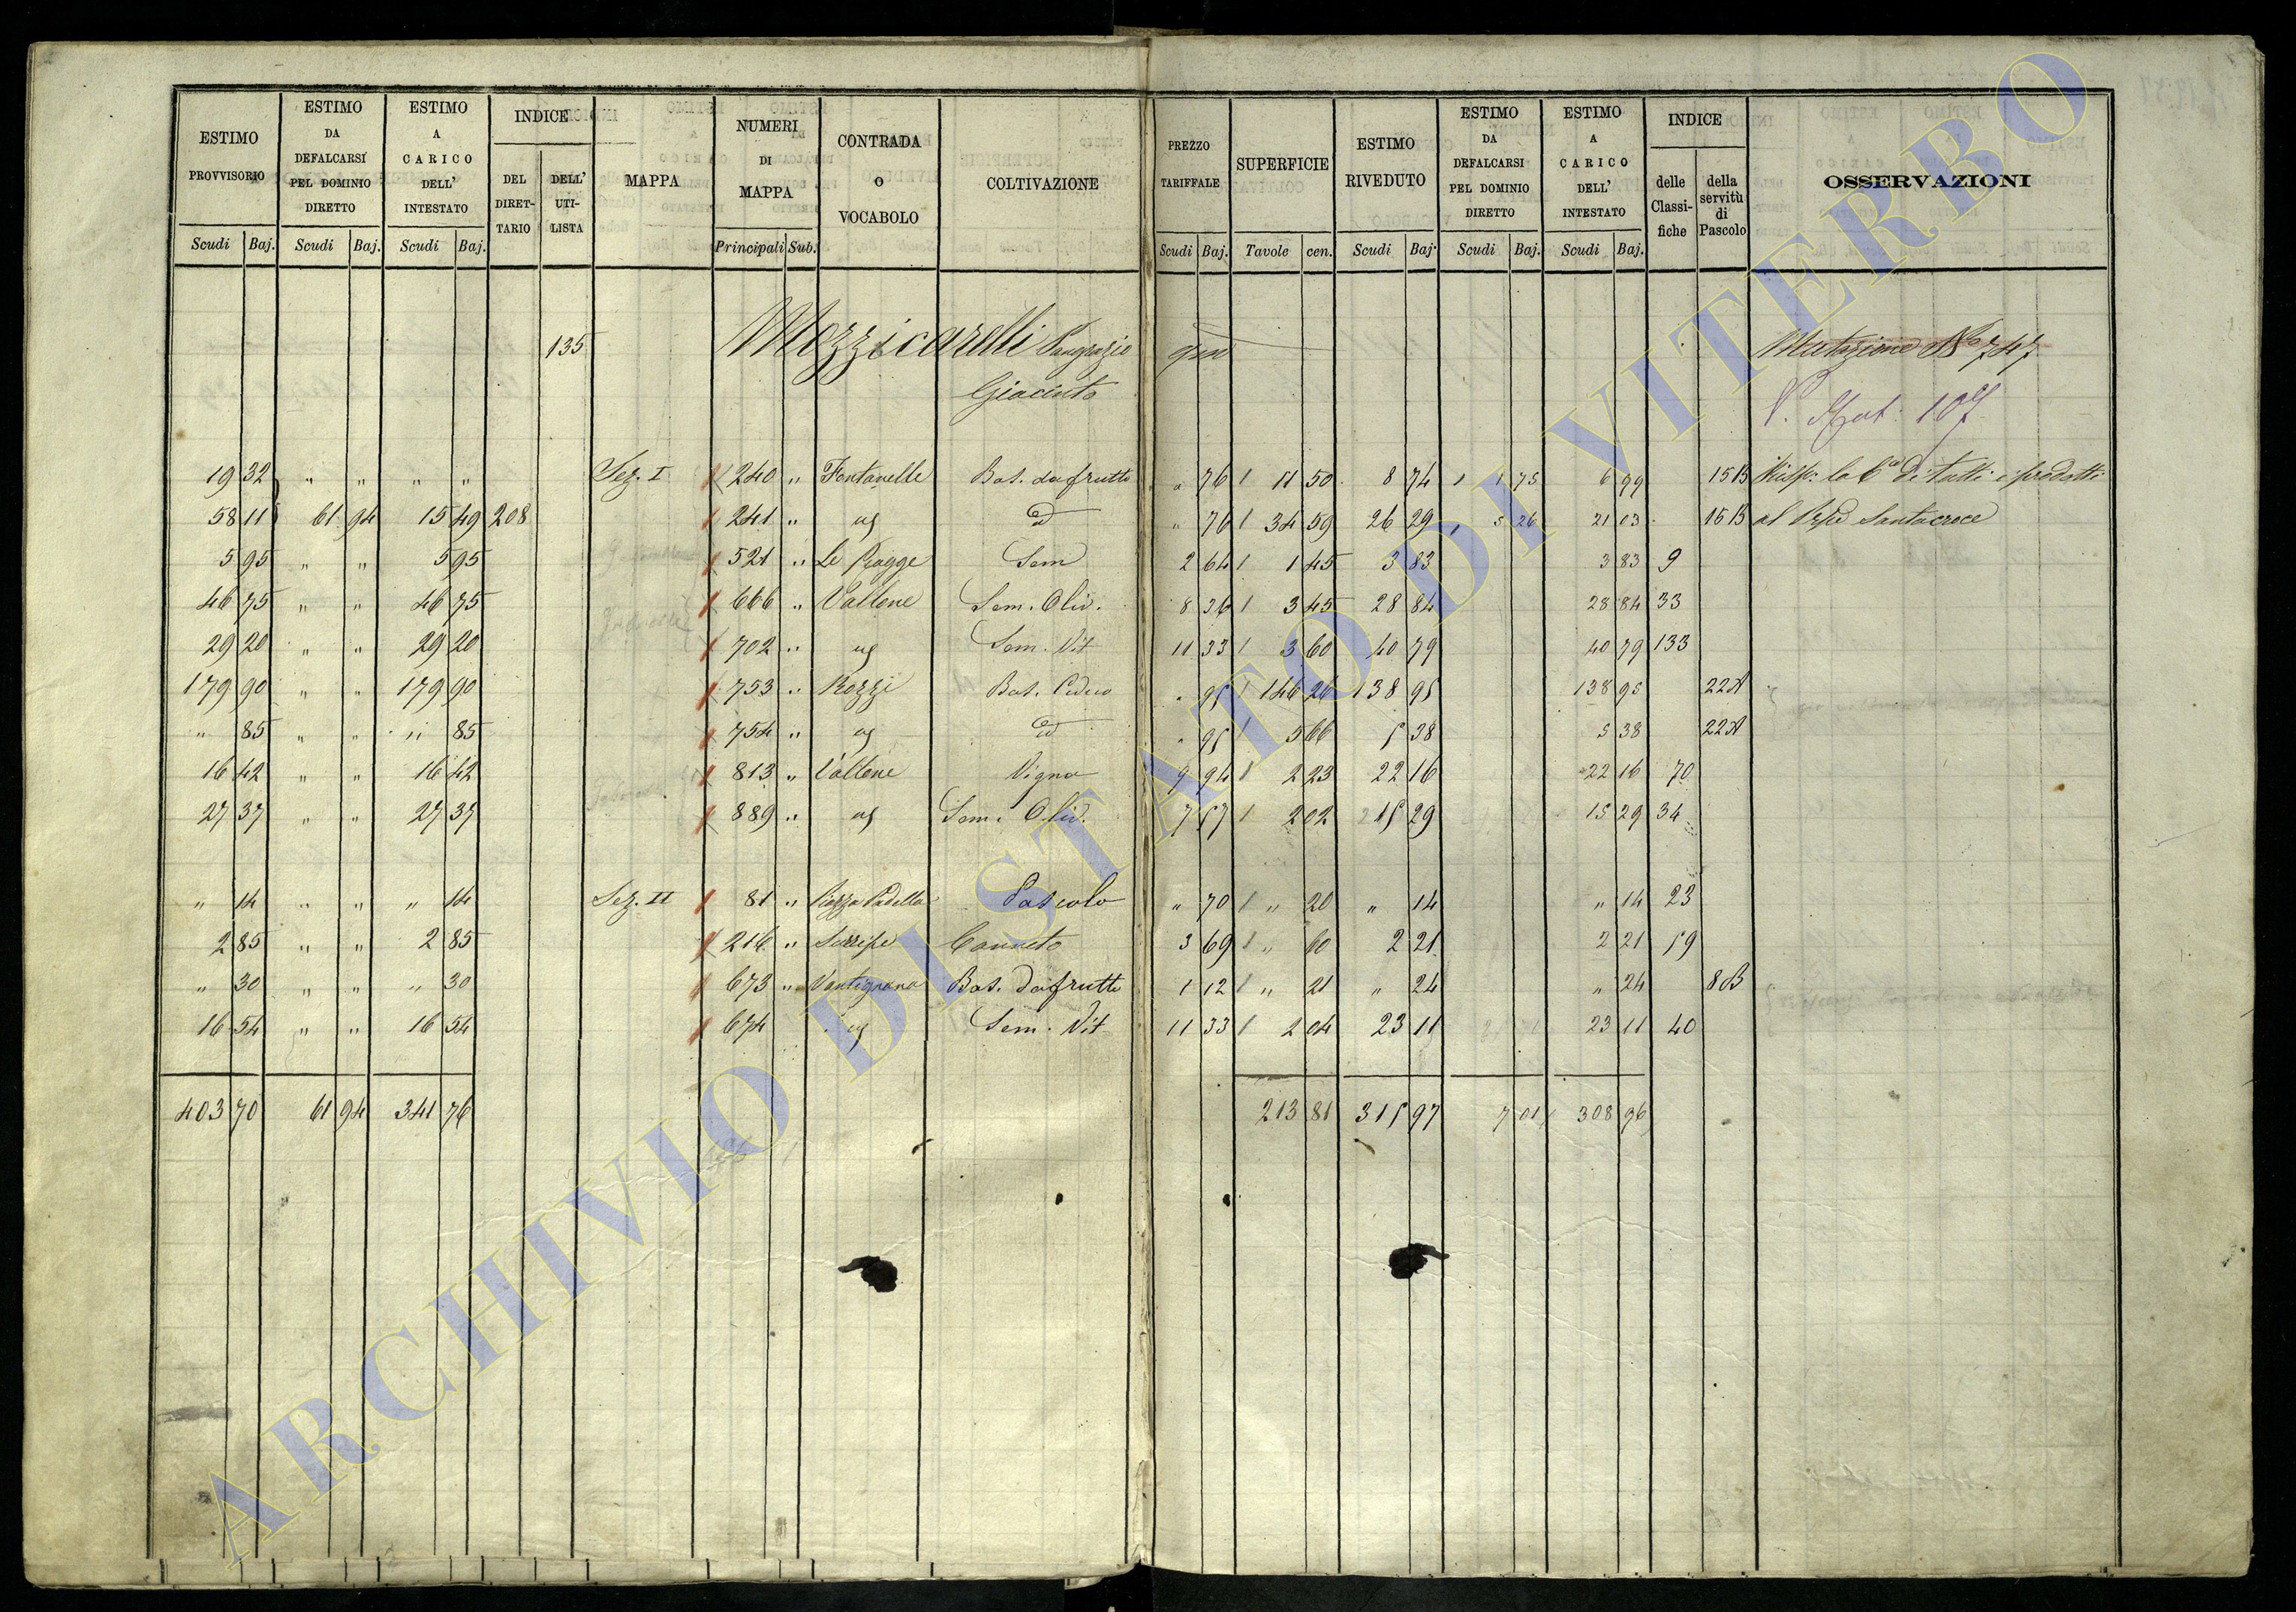 ESTIMO PROVVISORIO Scudi Baj.
ESTIMO DA DEFALCARSI PEL DOMINIO DIRETTO Scudi Baj.
ESTIMO A CARICO DELL' INTESTATO Scudi Baj.
INDICE DEL DIRET-TARIO DELL' UTI-LISTA
MAPPA
NUMERI DI MAPPA Principali Sub.
CONTRADA O VOCABOLO
COLTIVAZIONE
PREZZO TARIFFALE Scudi Baj.
SUPERFICIE Tavole cen.
ESTIMO RIVEDUTO Scudi Baj.
ESTIMO DA DEFALCARSI PEL DOMINIO DIRETTO Scudi Baj.
ESTIMO A CARICO DELL' INTESTATO Scudi Baj.
INDICE delle Classi-fiche della servitù di Pascolo
OSSERVAZIONI
135 Mozzicarelli Pangrazio qm Mutazione No 747
Giacinto
V. Mut. 107
19 32 " " " " Sez. I 240 " Fontanelle Bos. da frutto " 76 11 50 8 74 1 75 6 99 15B Risp: la di tutti i prodotti
58 11 61 94 15 49 208 241 " ug d " 76 34 59 26 29 5 26 21 03 15B al Santacroce
5 95 " " 5 95 521 " Le Sem 2 64 1 45 3 83 3 83 9
46 75 " " 46 75 666 " Vallone Sem. Oliv. 8 36 3 45 28 84 28 84 33
29 20 " " 29 20 702 " ug Sem. Vit 11 33 3 60 40 79 40 79 133
179 90 " " 179 90 753 " Rozzi Bos. Ceduo " 95 146 26 138 95 138 95 22A
" 85 " " " 85 754 " ug d " 95 5 66 5 38 5 38 22A
16 42 " " 16 42 813 " Vallone Vigna 9 94 2 23 22 16 22 16 70
27 37 " " 27 37 889 " ug Sem. Oliv. 7 57 2 02 15 29 15 29 34
" 14 " " " 14 Sez. II 81 " Piazza Padella Pascolo " 70 " 20 " 14 " 14 23
2 85 " " 2 85 216 " Canneto 3 69 " 60 2 21 2 21 59
" 30 " " " 30 673 " Vantignana Bos. da frutto 1 12 " 21 " 24 " 24 8B
16 54 " " 16 54 674 ug Sem. Vit 11 33 2 04 23 11 23 11 40
403 70 61 94 341 76 213 81 315 97 7 01 308 96
ARCHIVIO DI STATO DI VITERBO